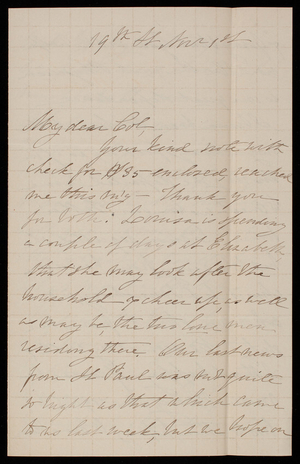 19th St, Nov 1st
My dear Col
Your kind note with
check for $35 enclosed, reached
me this m'g — Thank you
for both! Louisa is spending
a couple of days at Elizabeth
that she may look after the
household & cheer up, as well
as may be, the two lone men
residing there. Our last news
from St Paul was not quite
so bright as that which came
to us last week, but we hope on